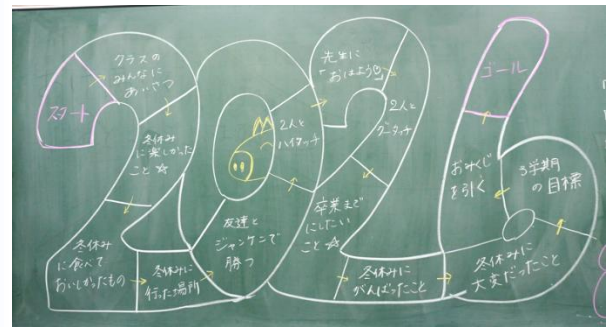 スタート
クラスの
みんなに
あいさつ
冬休み
に楽しかった
こと☆
冬休み
に食べて
おいしかったもの
冬休みに
行った場所
友達と
ジャンケンで
勝つ
2人と
ハイタッチ
先生に
「おはよう」
2人と
グータッチ
卒業まで
にしたい
こと☆
冬休みに
がんばったこと
冬休みに
大変だったこと
3学期
の目標
おみくじ
を引く
ゴール